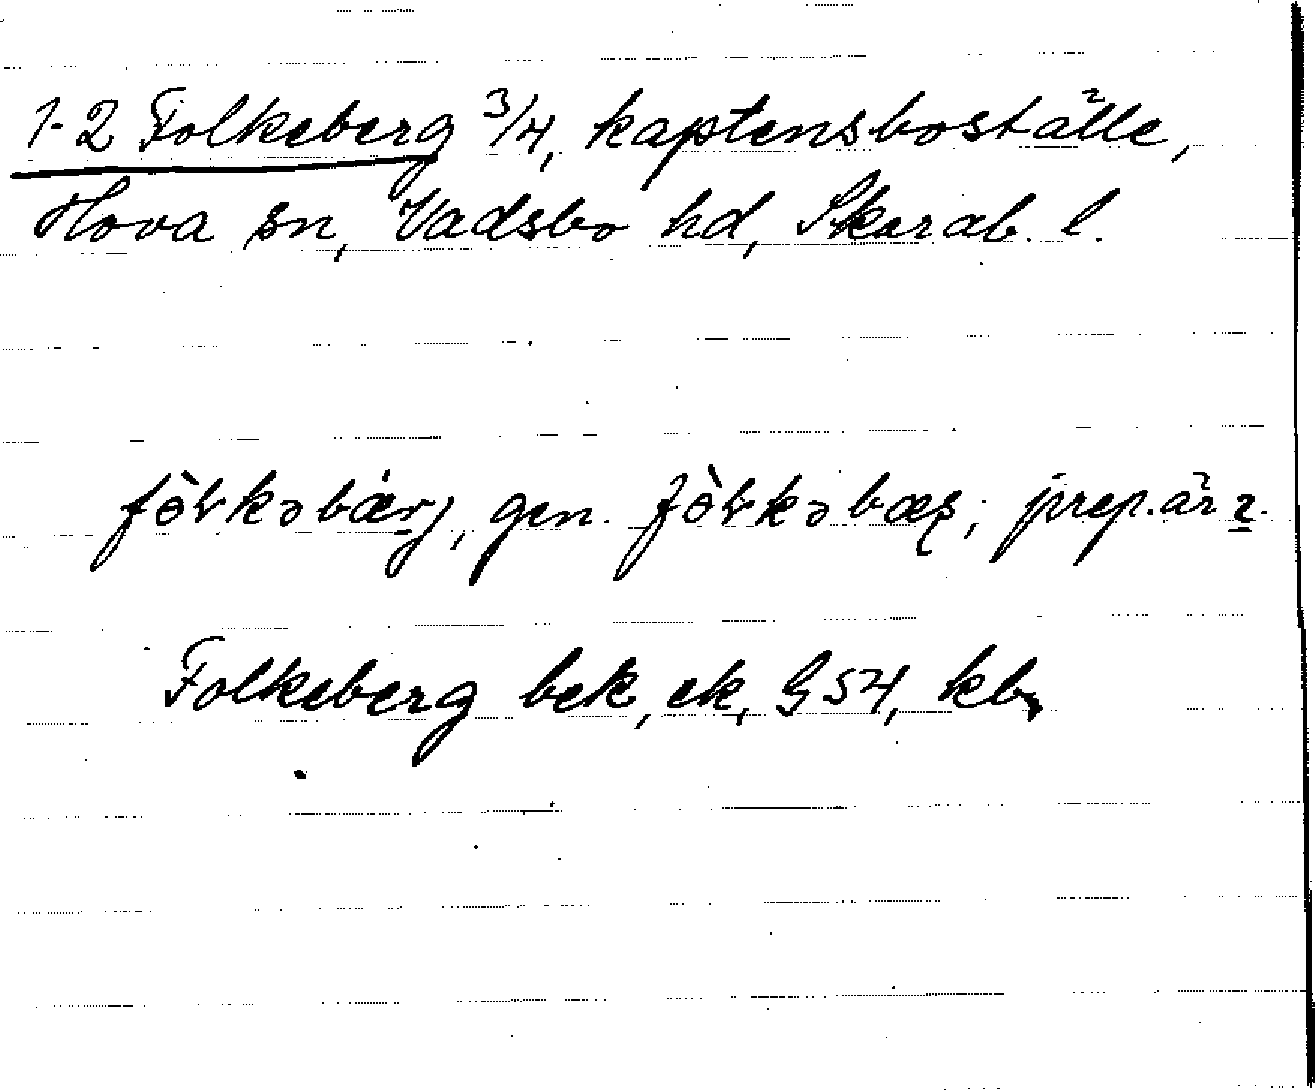 1-2 Folkeberg 3/4, kaptensboställe,
Hova sn, Vadsbo hd, Skarab. l.
fòɫkəbárj, gen. fòɫkəbæʂ; prep. är i.
Folkeberg bek, ek, G54, kb,